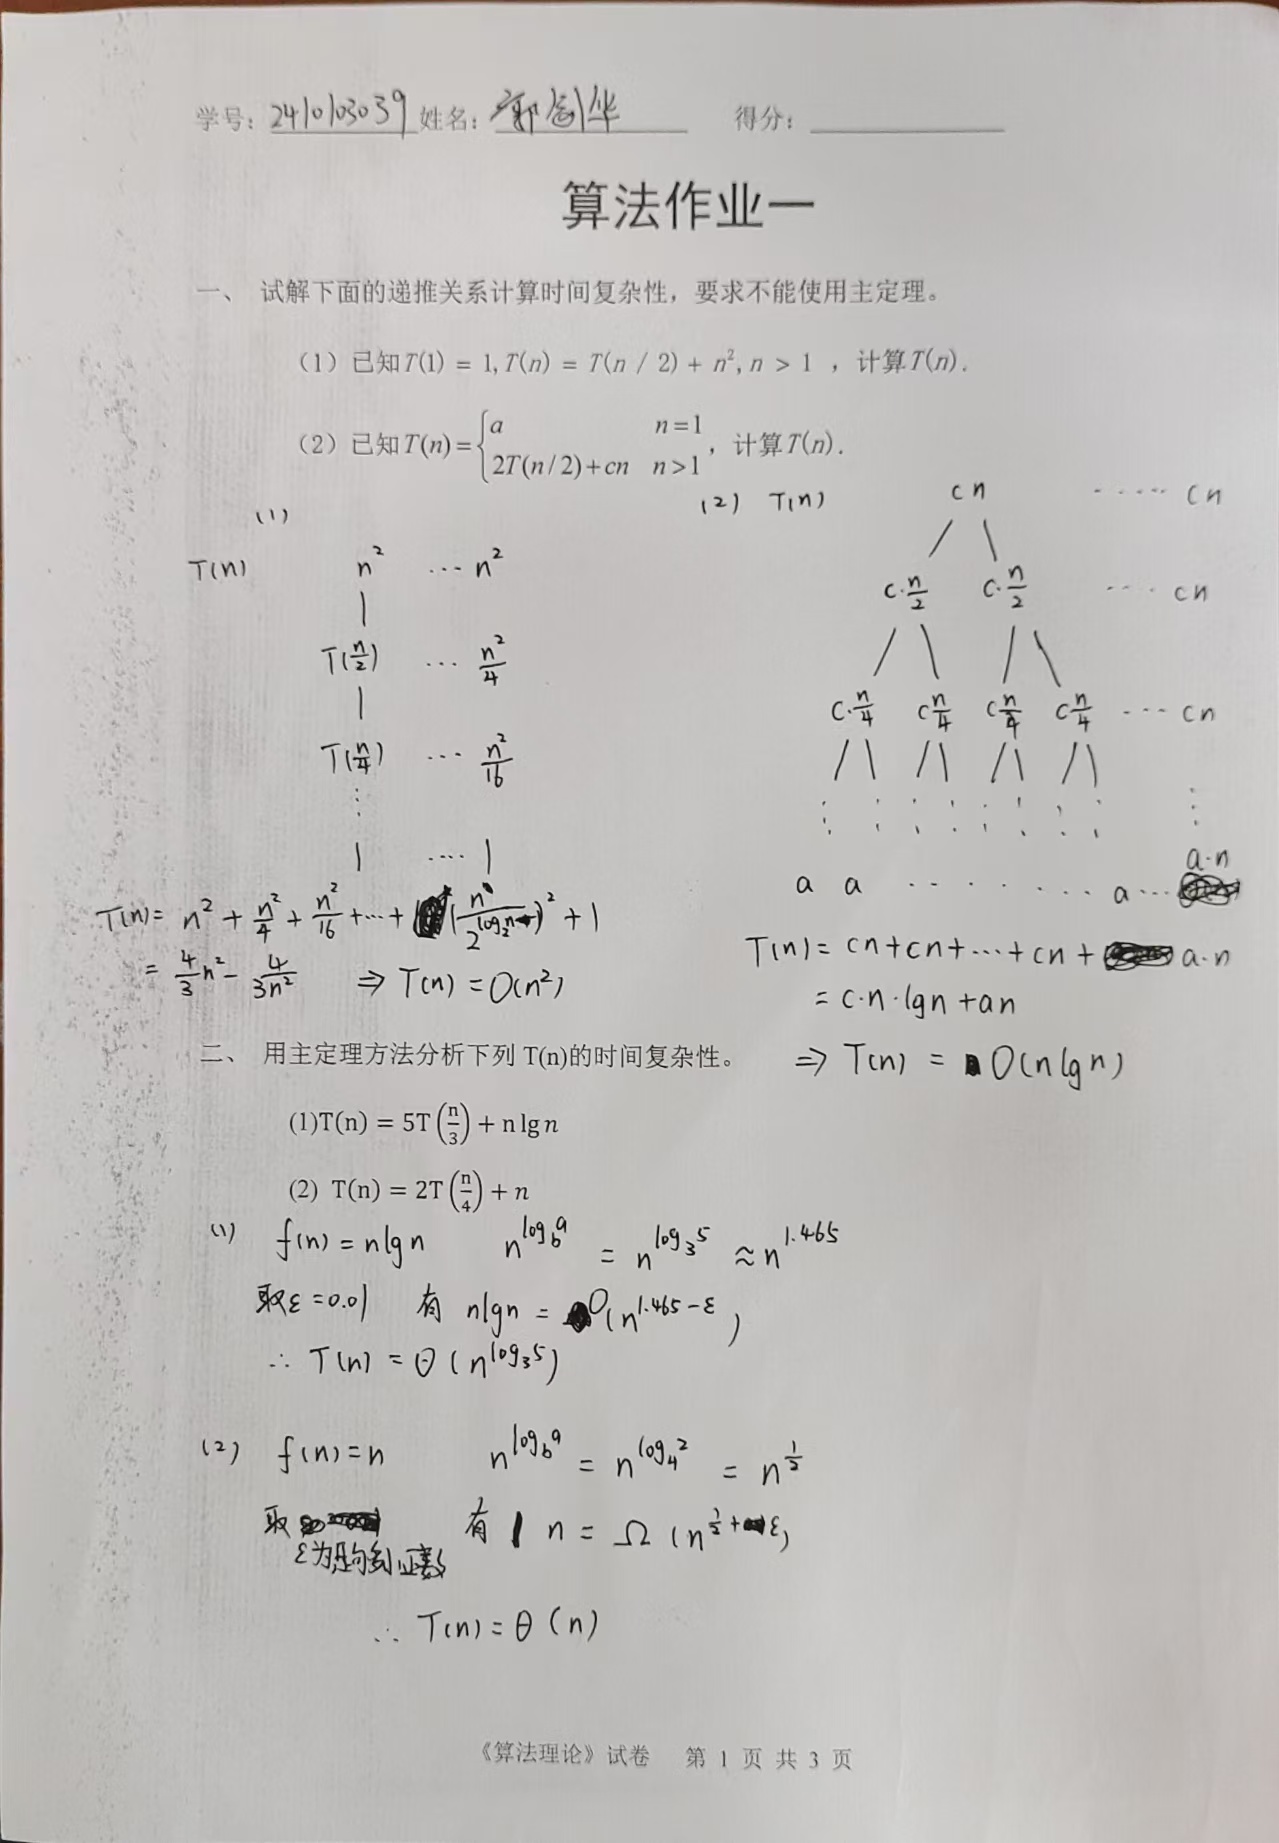 学号: 2410103039 姓名: 郭剑华 得分:
算法作业一
一、 试解下面的递推关系计算时间复杂性，要求不能使用主定理。
（1）已知T(1) = 1, T(n) = T(n / 2) + n², n > 1 ，计算T(n).
（2）已知T(n)={a n=1
2T(n/2)+cn n>1，计算T(n).
(1)
T(n) n² ... n²
T(n/2) ... n²/4
T(n/4) ... n²/16
⋮
1 .... 1
T(n)= n² + n²/4 + n²/16 +...+ (n/2^(log₂n))² + 1
= 4/3 n² - 4/(3n²) ⇒ T(n) = O(n²)
(2) T(n) cn ..... cn
c·n/2 c·n/2 .... cn
c·n/4 c n/4 c n/4 c n/4 .... cn
a·n
a a ........ a ...
T(n) = cn+cn+...+cn+ a·n
= c·n·lgn+an
⇒ T(n) = O(n lg n)
二、 用主定理方法分析下列 T(n)的时间复杂性。
(1)T(n) = 5T(n/3) + n lg n
(2) T(n) = 2T(n/4) + n
(1) f(n) = nlgn n^(log_b a) = n^(log₃5) ≈ n^1.465
取ε=0.01 有 nlgn = O(n^(1.465-ε))
∴ T(n) = θ(n^(log₃5))
(2) f(n)=n n^(log_b a) = n^(log₄2) = n^(1/2)
取 有 n = Ω(n^(1/2+ε))
ε为足够小正数
∴ T(n)=θ(n)
《算法理论》试卷 第 1 页 共 3 页